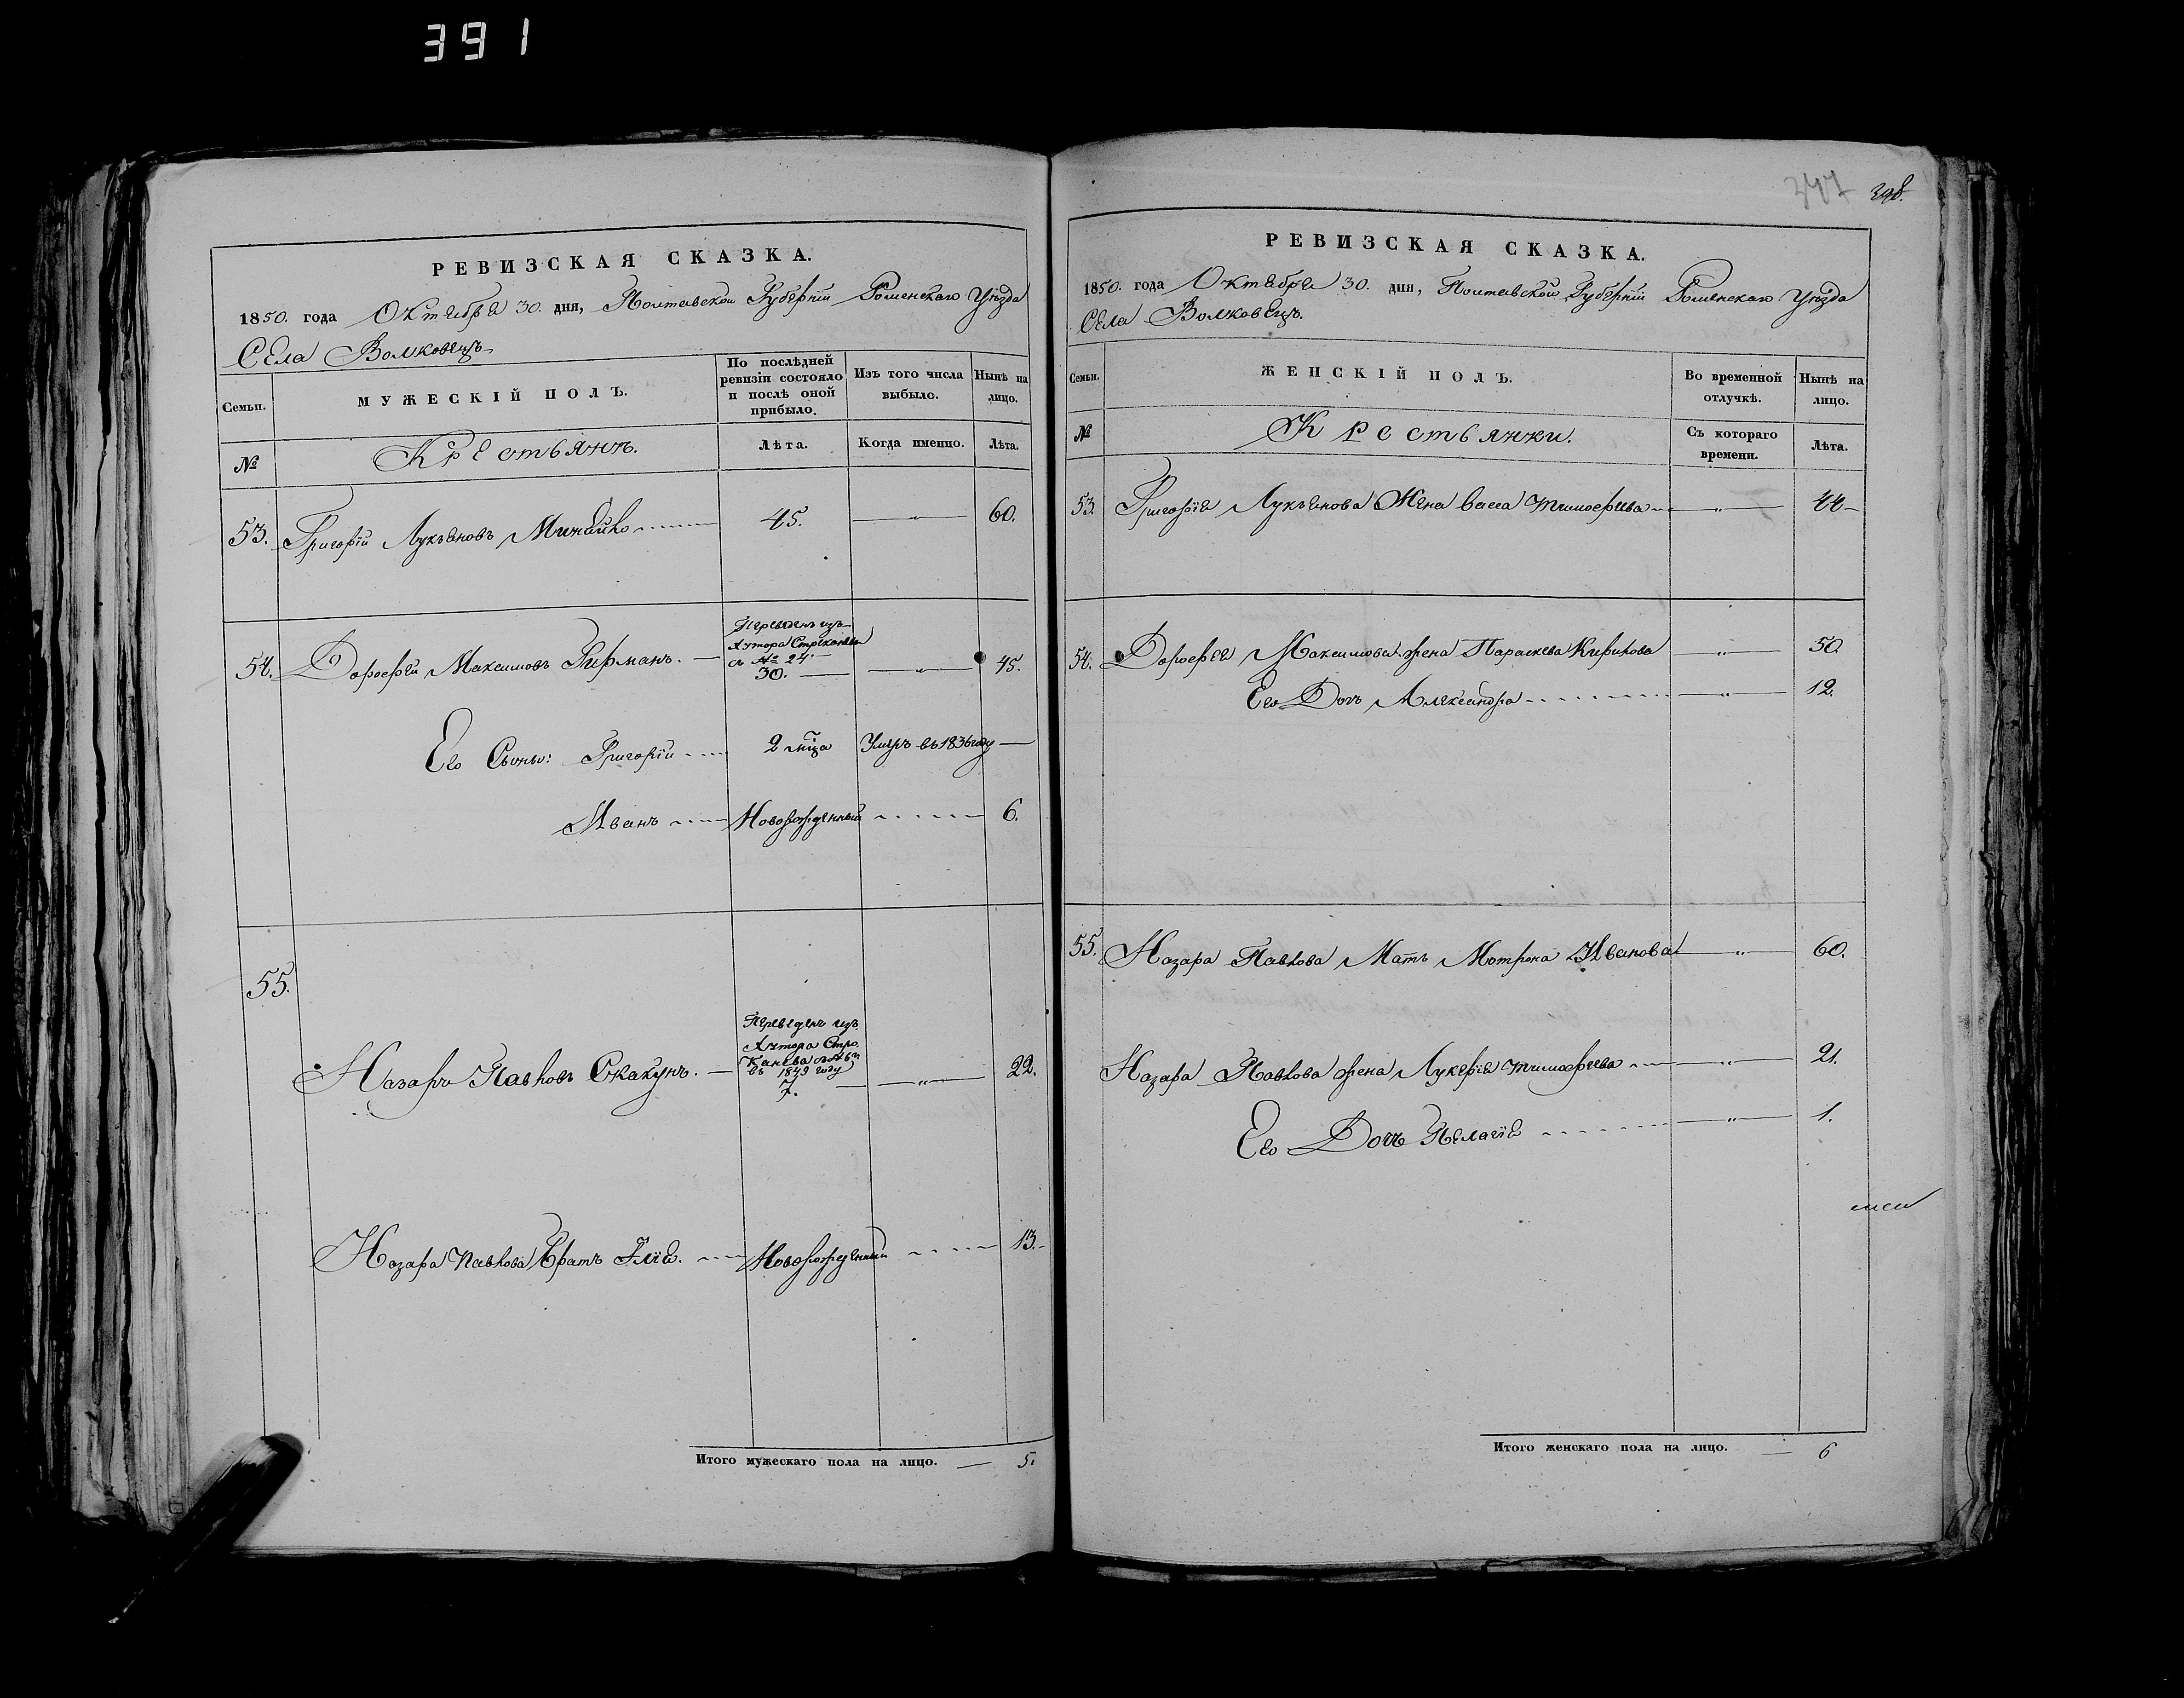 391
РЕВИЗСКАЯ СКАЗКА.
1850. года Октября 30. дня, Полтавской Губерніи Роменскаго Уѣзда
Села Волковецъ
Семьи.
МУЖЕСКІЙ ПОЛЪ.
По послѣдней
ревизіи состояло
и послѣ оной
прибыло.
Изъ того числа
выбыло.
Нынѣ на
лицо.
№
Крестьянъ.
Лѣта.
Когда именно.
Лѣта.
53. Григорій Лукьяновъ Минайко 45. 60.
Переведенъ изъ
Хутора Строканева
с № 24
54. Дорофей Максимовъ 30. 45.
Его Сыны: Григорій 2 мѣца Умеръ въ 1836 году
Иванъ Новорожденный 6.
55.
Переведенъ изъ
Хутора Стро
канева
въ 1849 году
Назаръ Павловъ Скакунъ. 7. 22.
Назара Павлова Братъ Илія. Новорожденный 13.
Итого мужескаго пола на лицо. 5.
347 348.
РЕВИЗСКАЯ СКАЗКА.
1850. года Октября 30. дня, Полтавской Губерніи Роменскаго Уѣзда
Села Волковецъ.
Семьи.
ЖЕНСКІЙ ПОЛЪ.
Во временной
отлучкѣ.
Нынѣ на
лицо.
№
Крестьянки.
Съ котораго
времени.
Лѣта.
53. Григорія Лукьянова Жена Васса Тимофеева 44
54. Дорофея Максимова жена Параскева Кирикова 50.
Его Дочь Александра 12.
55. Назара Павлова Мать Мотрона Иванова 60.
Назара Павлова жена Лукерія Тимофеева 21.
Его Дочь Пелагія 1.
Итого женскаго пола на лицо. 6